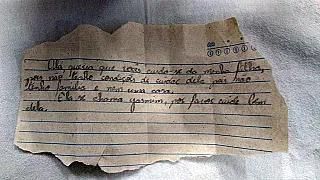 queria que vocês cuida-se da minha filha,
pois não tenho condições di cuidar dela, pois não
tenho família e nem uma casa.
Ela se chama yasmim, por favor cuide bem
dela.